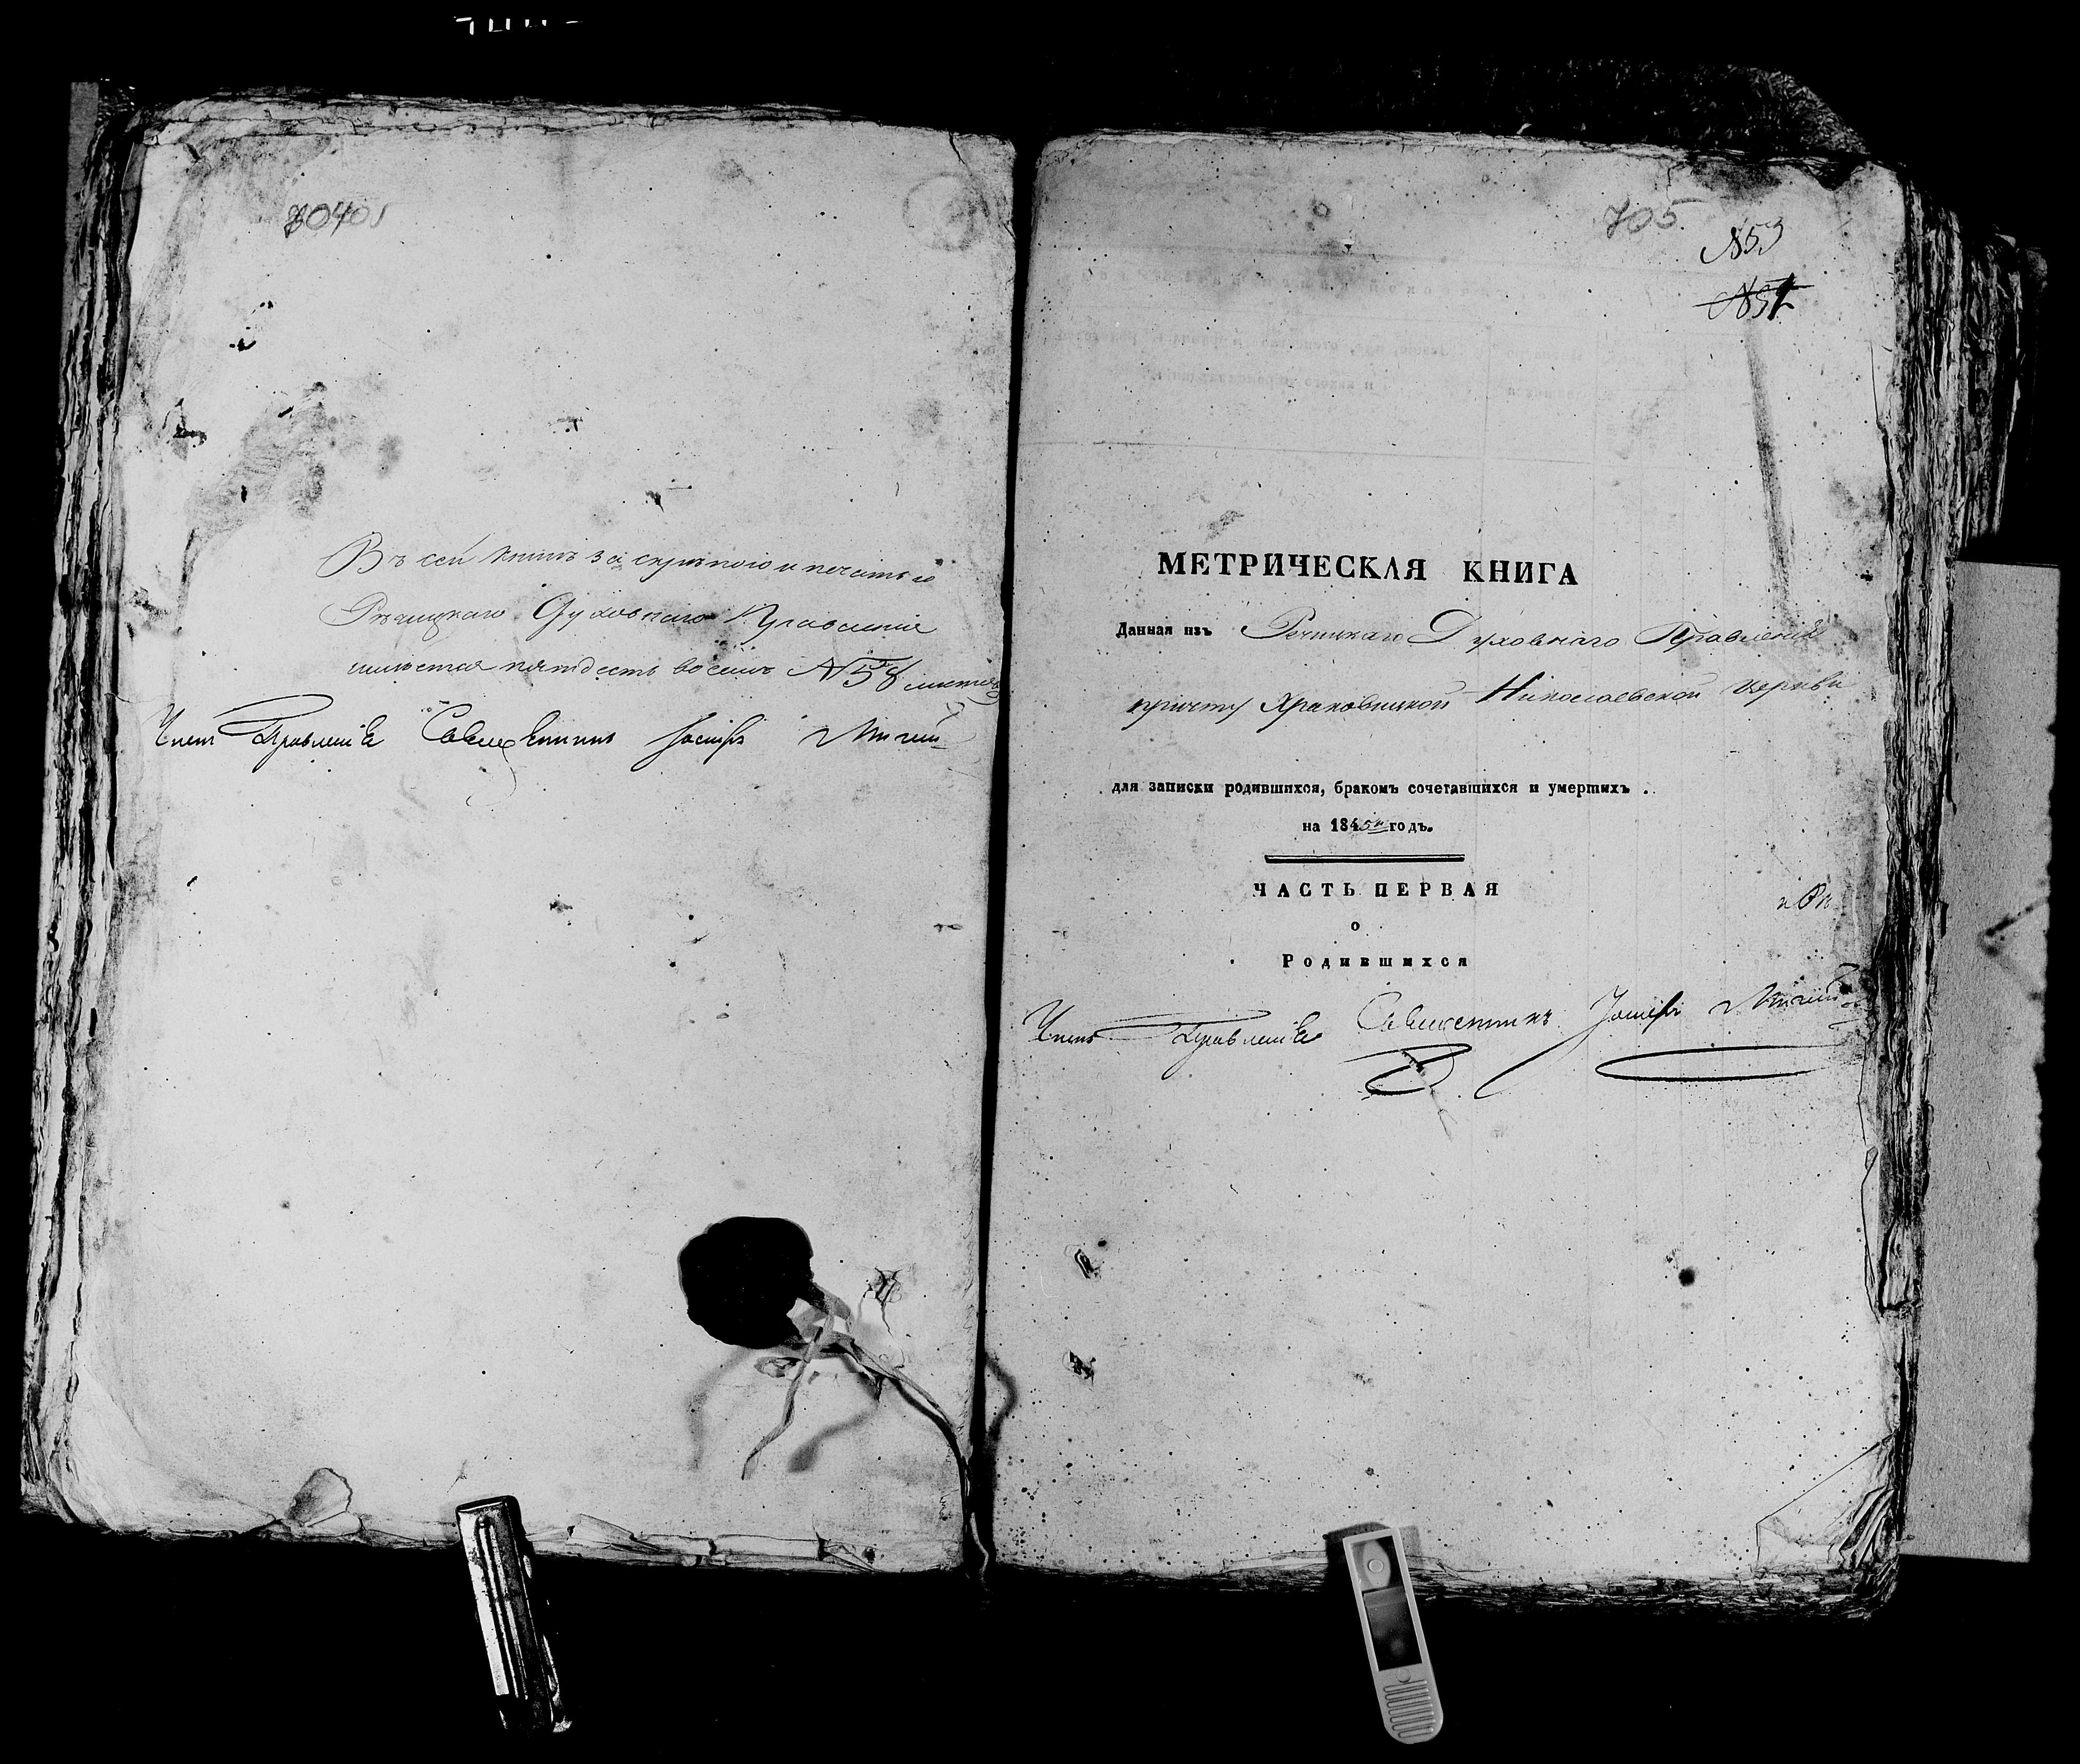 Въ сей книгѣ за скрѣпою и печатью
Рѣчицкаго Духовнаго Правленія
имѣется пятдесятъ восемъ N 58 листовъ
Членъ Правленія Священникъ Іосифъ
705.
N53
МЕТРИЧЕСКАЯ КНИГА
Данная изъ Речицкаго Духовнаго Правленія
причту Храковицкой Николаевской церкви
для записки родившихся, бракомъ сочетавшихся и умершихъ
на 1845й годъ.
ЧАСТЬ ПЕРВАЯ
о
Родившихся
Членъ Правленія Священникъ Іосифъ